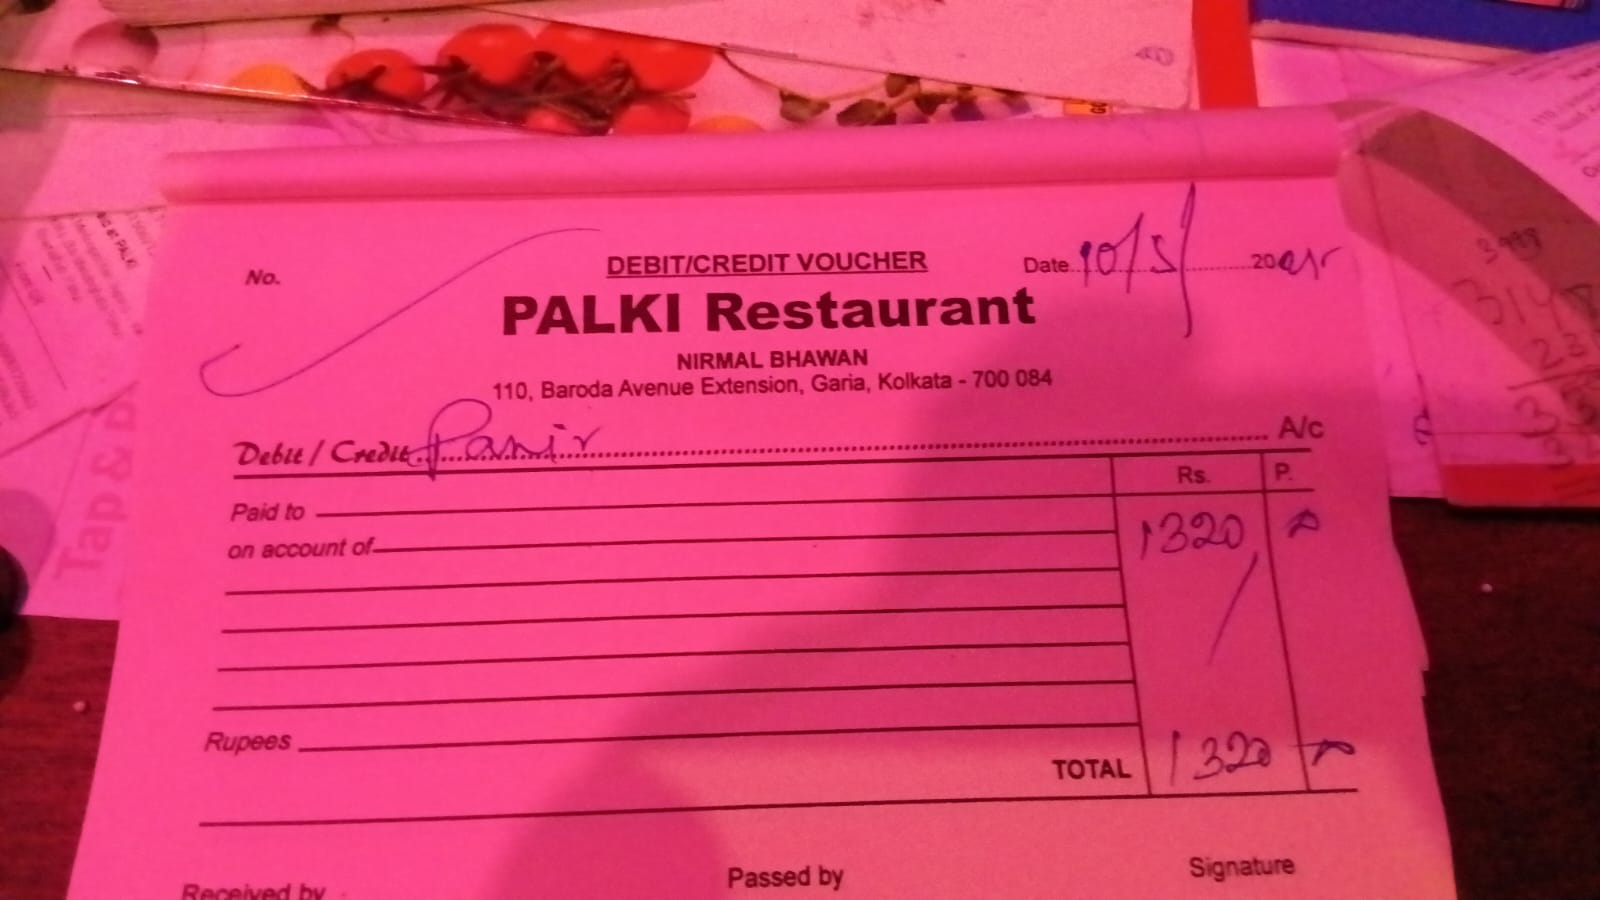 DEBIT/CREDIT VOUCHER
No.
Date 10/5/ 20
PALKI Restaurant
NIRMAL BHAWAN
110, Baroda Avenue Extension, Garia, Kolkata - 700 084
Debit / Credit Panir A/c
Rs. P.
Paid to
1320
on account of
Rupees
TOTAL 1320
Received by Passed by Signature
Tap &